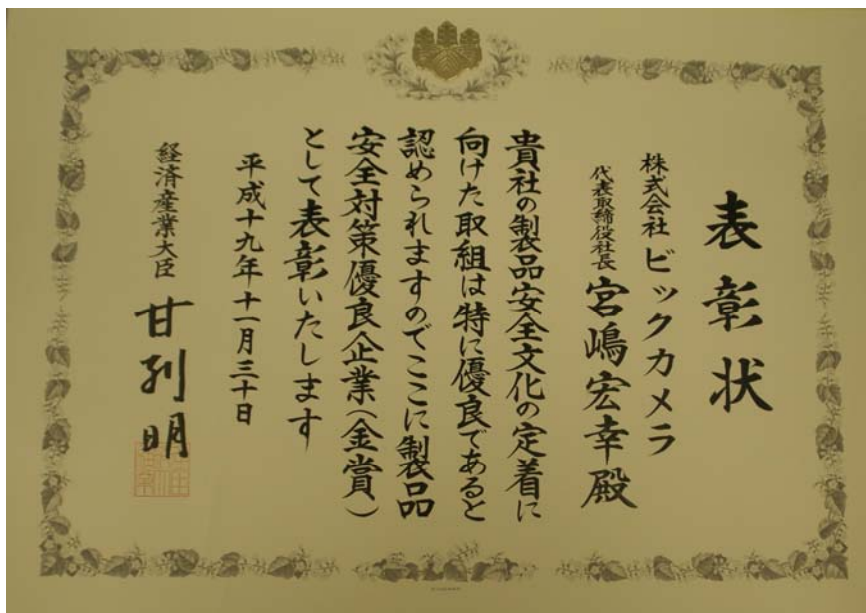 表彰状
株式会社 ビックカメラ
代表取締役社長 宮嶋宏幸殿
貴社の製品安全文化の定着に
向けた取組は特に優良であると
認められますのでここに製品
安全対策優良企業(金賞)
として表彰いたします
平成十九年十一月三十日
経済産業大臣 甘利明